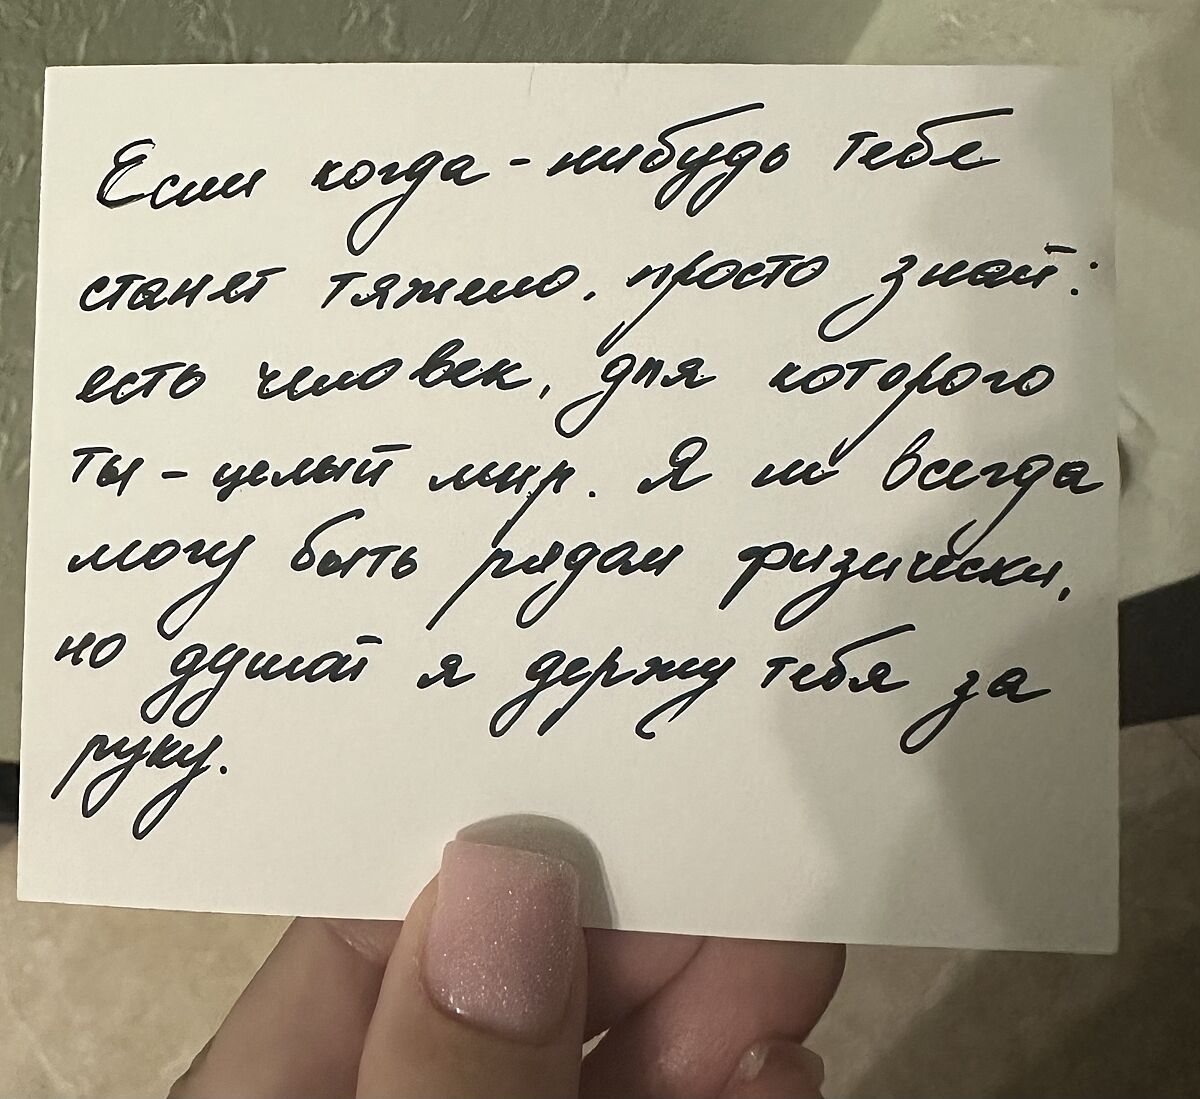 Если когда-нибудь тебе
станет тяжело, просто знай:
есть человек, для которого
ты - целый мир. Я не всегда
могу быть рядом физически,
но душой я держу тебя за
руку.